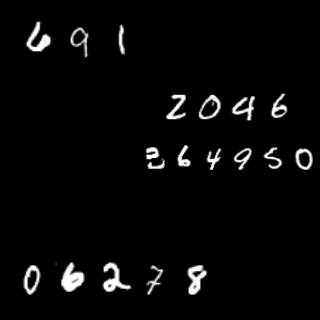 691
2046
364950
06278